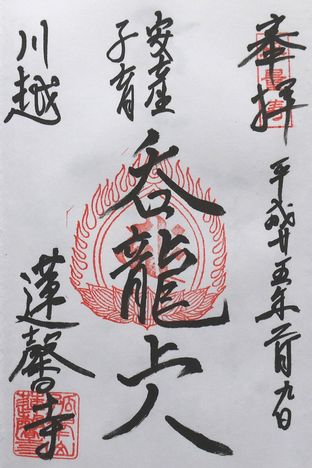 奉拝
平成廿五年二月九日
安産
子育
呑龍上人
川越
蓮馨寺